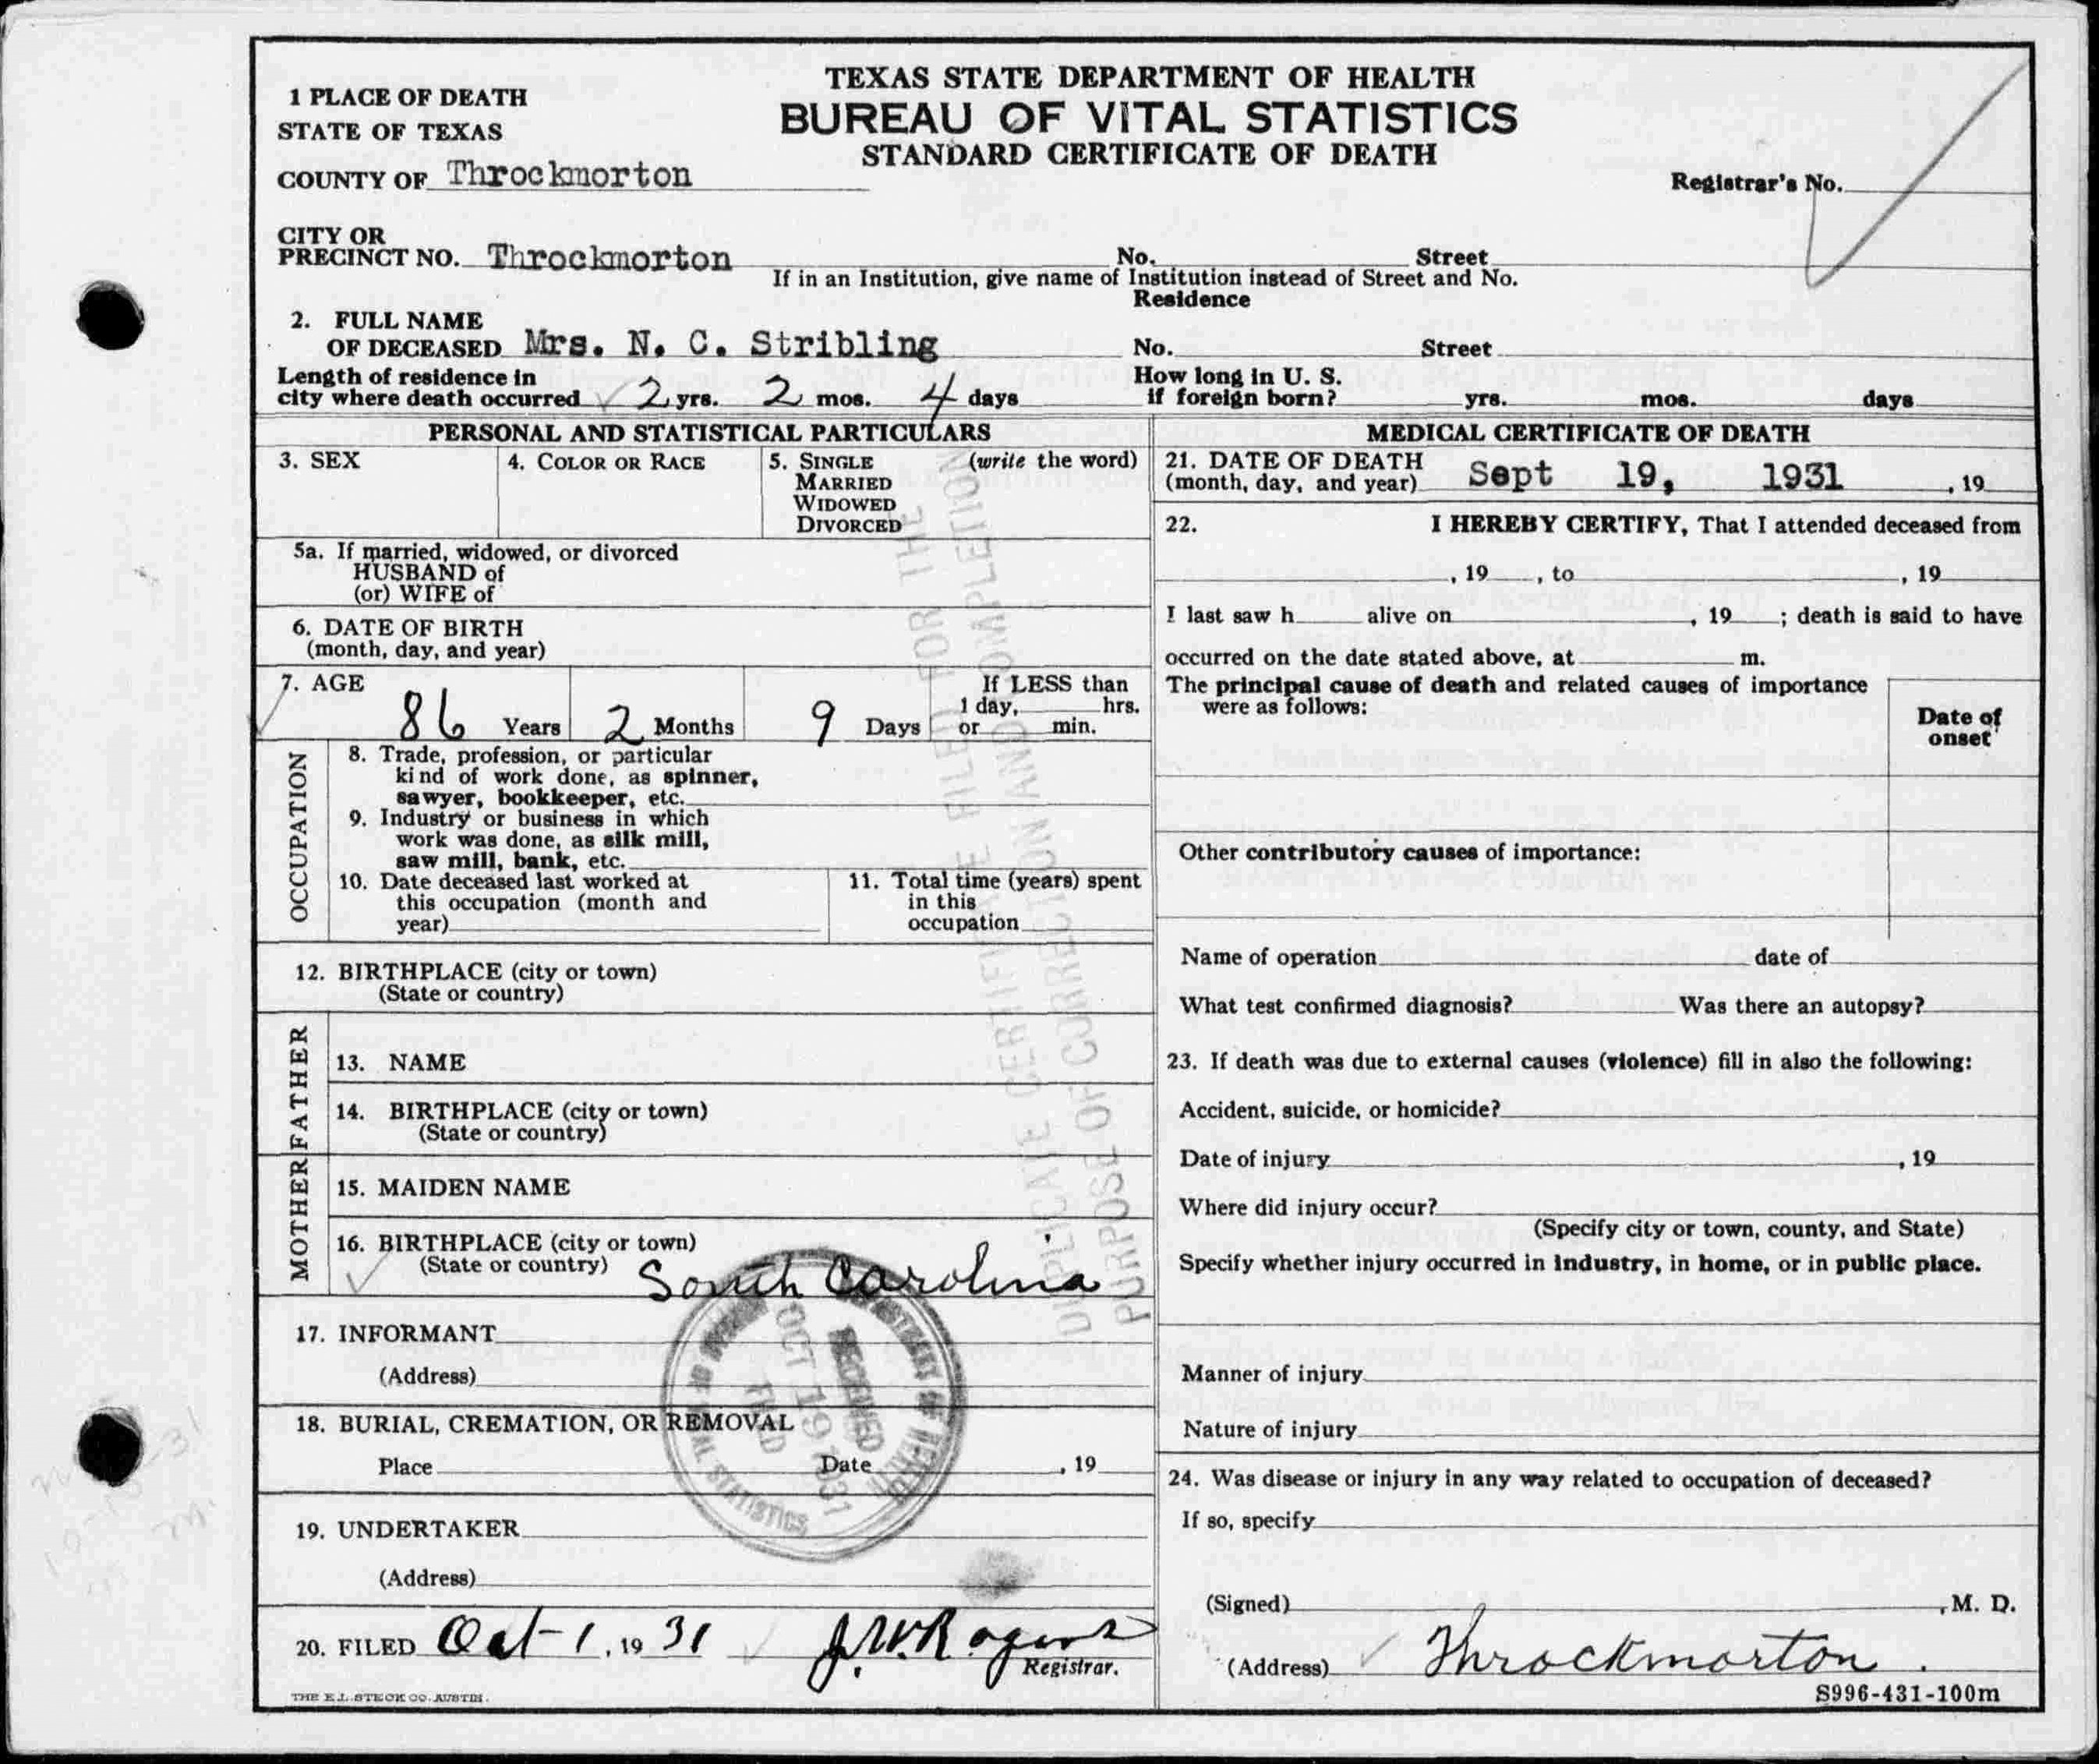 1 PLACE OF DEATH
STATE OF TEXAS
COUNTY OF Throckmorton
TEXAS STATE DEPARTMENT OF HEALTH
BUREAU OF VITAL STATISTICS
STANDARD CERTIFICATE OF DEATH
Registrar's No.
CITY OR
PRECINCT NO. Throckmorton No. Street
If in an Institution, give name of Institution instead of Street and No.
Residence
2. FULL NAME
OF DECEASED Mrs. N. C. Stribling No. Street
Length of residence in
city where death occurred 2 yrs. 2 mos. 4 days
How long in U. S.
if foreign born? yrs. mos. days
PERSONAL AND STATISTICAL PARTICULARS
3. SEX
4. COLOR OR RACE
5. SINGLE (write the word)
MARRIED
WIDOWED
DIVORCED
5a. If married, widowed, or divorced
HUSBAND of
(or) WIFE of
6. DATE OF BIRTH
(month, day, and year)
7. AGE
86 Years 2 Months 9 Days
If LESS than
1 day, hrs.
or min.
OCCUPATION
8. Trade, profession, or particular
kind of work done, as spinner,
sawyer, bookkeeper, etc.
9. Industry or business in which
work was done, as silk mill,
saw mill, bank, etc.
10. Date deceased last worked at
this occupation (month and
year)
11. Total time (years) spent
in this
occupation
12. BIRTHPLACE (city or town)
(State or country)
FATHER
13. NAME
14. BIRTHPLACE (city or town)
(State or country)
MOTHER
15. MAIDEN NAME
16. BIRTHPLACE (city or town)
(State or country) South Carolina
17. INFORMANT
(Address)
18. BURIAL, CREMATION, OR REMOVAL
Place Date , 19
19. UNDERTAKER
(Address)
20. FILED Oct-1, 1931
Registrar.
THE E.L. STECK CO. AUSTIN.
DUPLICATE CERTIFICATE FILED FOR THE
PURPOSE OF CORRECTION AND COMPLETION
RECEIVED
OCT 19 1931
FILED
STATISTICS
MEDICAL CERTIFICATE OF DEATH
21. DATE OF DEATH
(month, day, and year) Sept 19, 1931 , 19
22. I HEREBY CERTIFY, That I attended deceased from
, 19 , to , 19
I last saw h alive on , 19 ; death is said to have
occurred on the date stated above, at m.
The principal cause of death and related causes of importance
were as follows:
Date of
onset
Other contributory causes of importance:
Name of operation date of
What test confirmed diagnosis? Was there an autopsy?
23. If death was due to external causes (violence) fill in also the following:
Accident, suicide, or homicide?
Date of injury , 19
Where did injury occur?
(Specify city or town, county, and State)
Specify whether injury occurred in Industry, in home, or in public place.
Manner of injury
Nature of injury
24. Was disease or injury in any way related to occupation of deceased?
If so, specify
(Signed) , M. D.
(Address) Throckmorton.
S996-431-100m